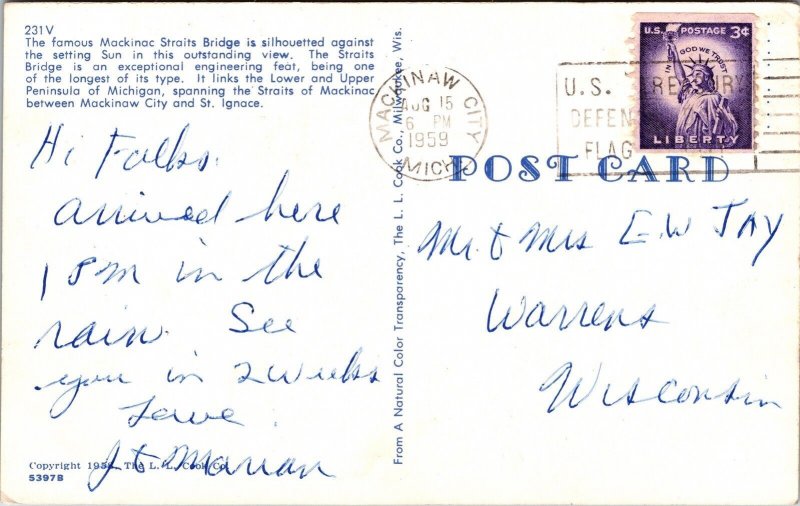 231V
The famous Mackinac Straits Bridge is silhouetted against
the setting Sun in this outstanding view. The Straits
Bridge is an exceptional engineering feat, being one
of the longest of its type. It links the Lower and Upper
Peninsula of Michigan, spanning the Straits of Mackinac
between Mackinaw City and St. Ignace.
Hi Folks.
arrived here
1 PM in the
rain. See
you in 2 weeks
Love
J & Marian
Copyright The L. L. Cook Co.
5397B
From A Natural Color Transparency, The L. L. Cook Co., Milwaukee, Wis.
MACKINAW CITY
AUG 15
6 PM
1959
MICH
U.S.
DEFEN
FLAG
U.S. POSTAGE 3¢
IN GOD WE TRUST
LIBERTY
POST CARD
Mr. & Mrs E.W JAY
Warrens
Wisconsin